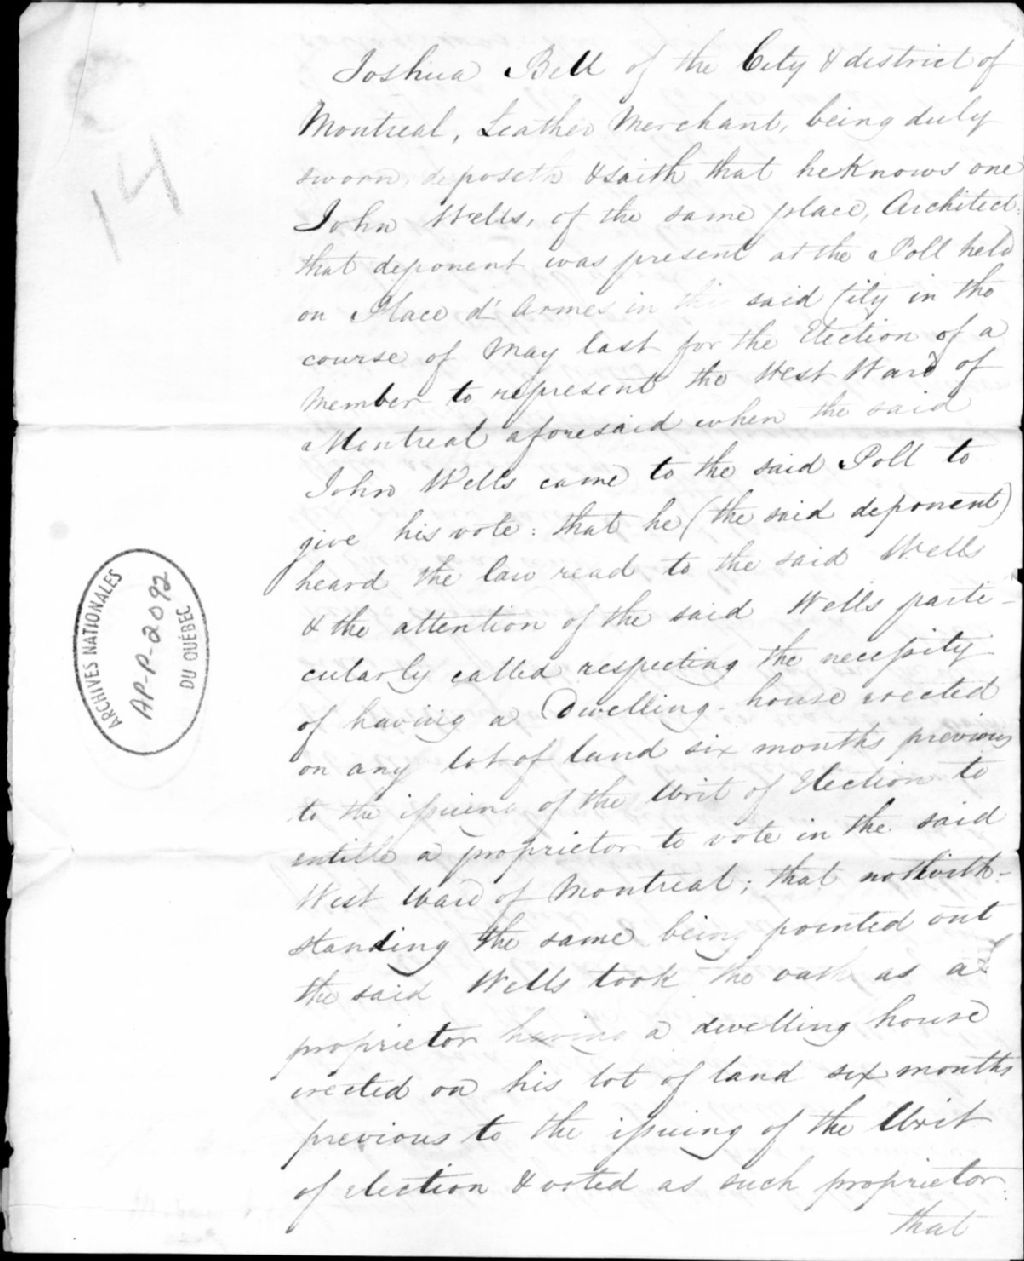 14
Joshua Bell of the City & district of
Montreal, Leather Merchant, being duly
sworn, deposeth & saith that he knows one
John Wells, of the same place, Architect:
that deponent was present at the Poll held
on Place d'Armes in the said City in the
course of May last for the Election of a
Member to represent the West Ward of
Montreal aforesaid when the said
John Wells came to the said Poll to
give his vote: that he (the said deponent)
heard the law read to the said Wells
& the attention of the said Wells parti-
cularly called respecting the necessity
of having a Dwelling-house erected
on any lot of land six months previous
to the issuing of the Writ of Election to
intitle a proprietor to vote in the said
West Ward of Montreal; that nothwith-
standing the same being pointed out
the said Wells took the oath as a
proprietor having a dwelling house
erected on his lot of land six months
previous to the issuing of the Writ
of election & voted as such proprietor:
that
ARCHIVES NATIONALES
AP-P-2092
DU QUÉBEC